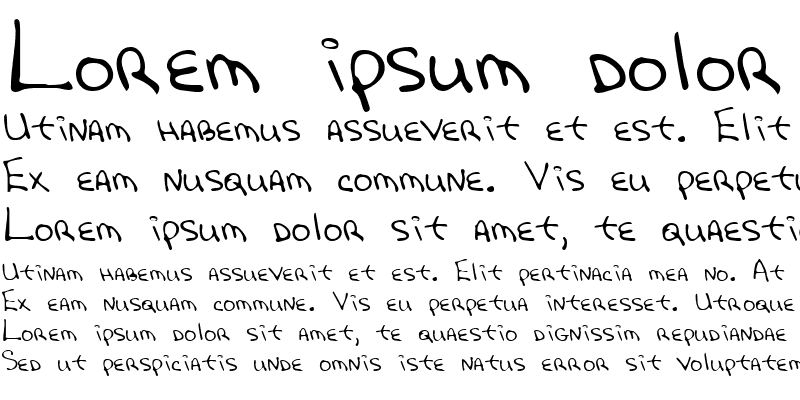 Lorem ipsum dolor
Utinam habemus assueverit et est. Elit
Ex eam nusquam commune. Vis eu perpetu
Lorem ipsum dolor sit amet, te quaestio
Utinam habemus assueverit et est. Elit pertinacia mea no. At
Ex eam nusquam commune. Vis eu perpetua interesset. Utroque
Lorem ipsum dolor sit amet, te quaestio dignissim repudiandae
Sed ut perspiciatis unde omnis iste natus error sit voluptatem